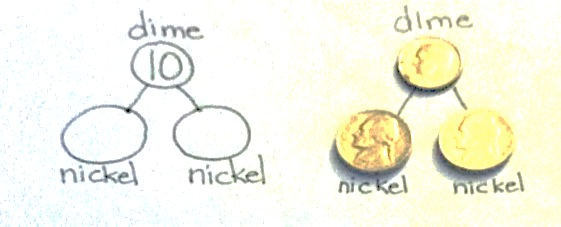 dime
10
nickel nickel
dime
nickel nickel